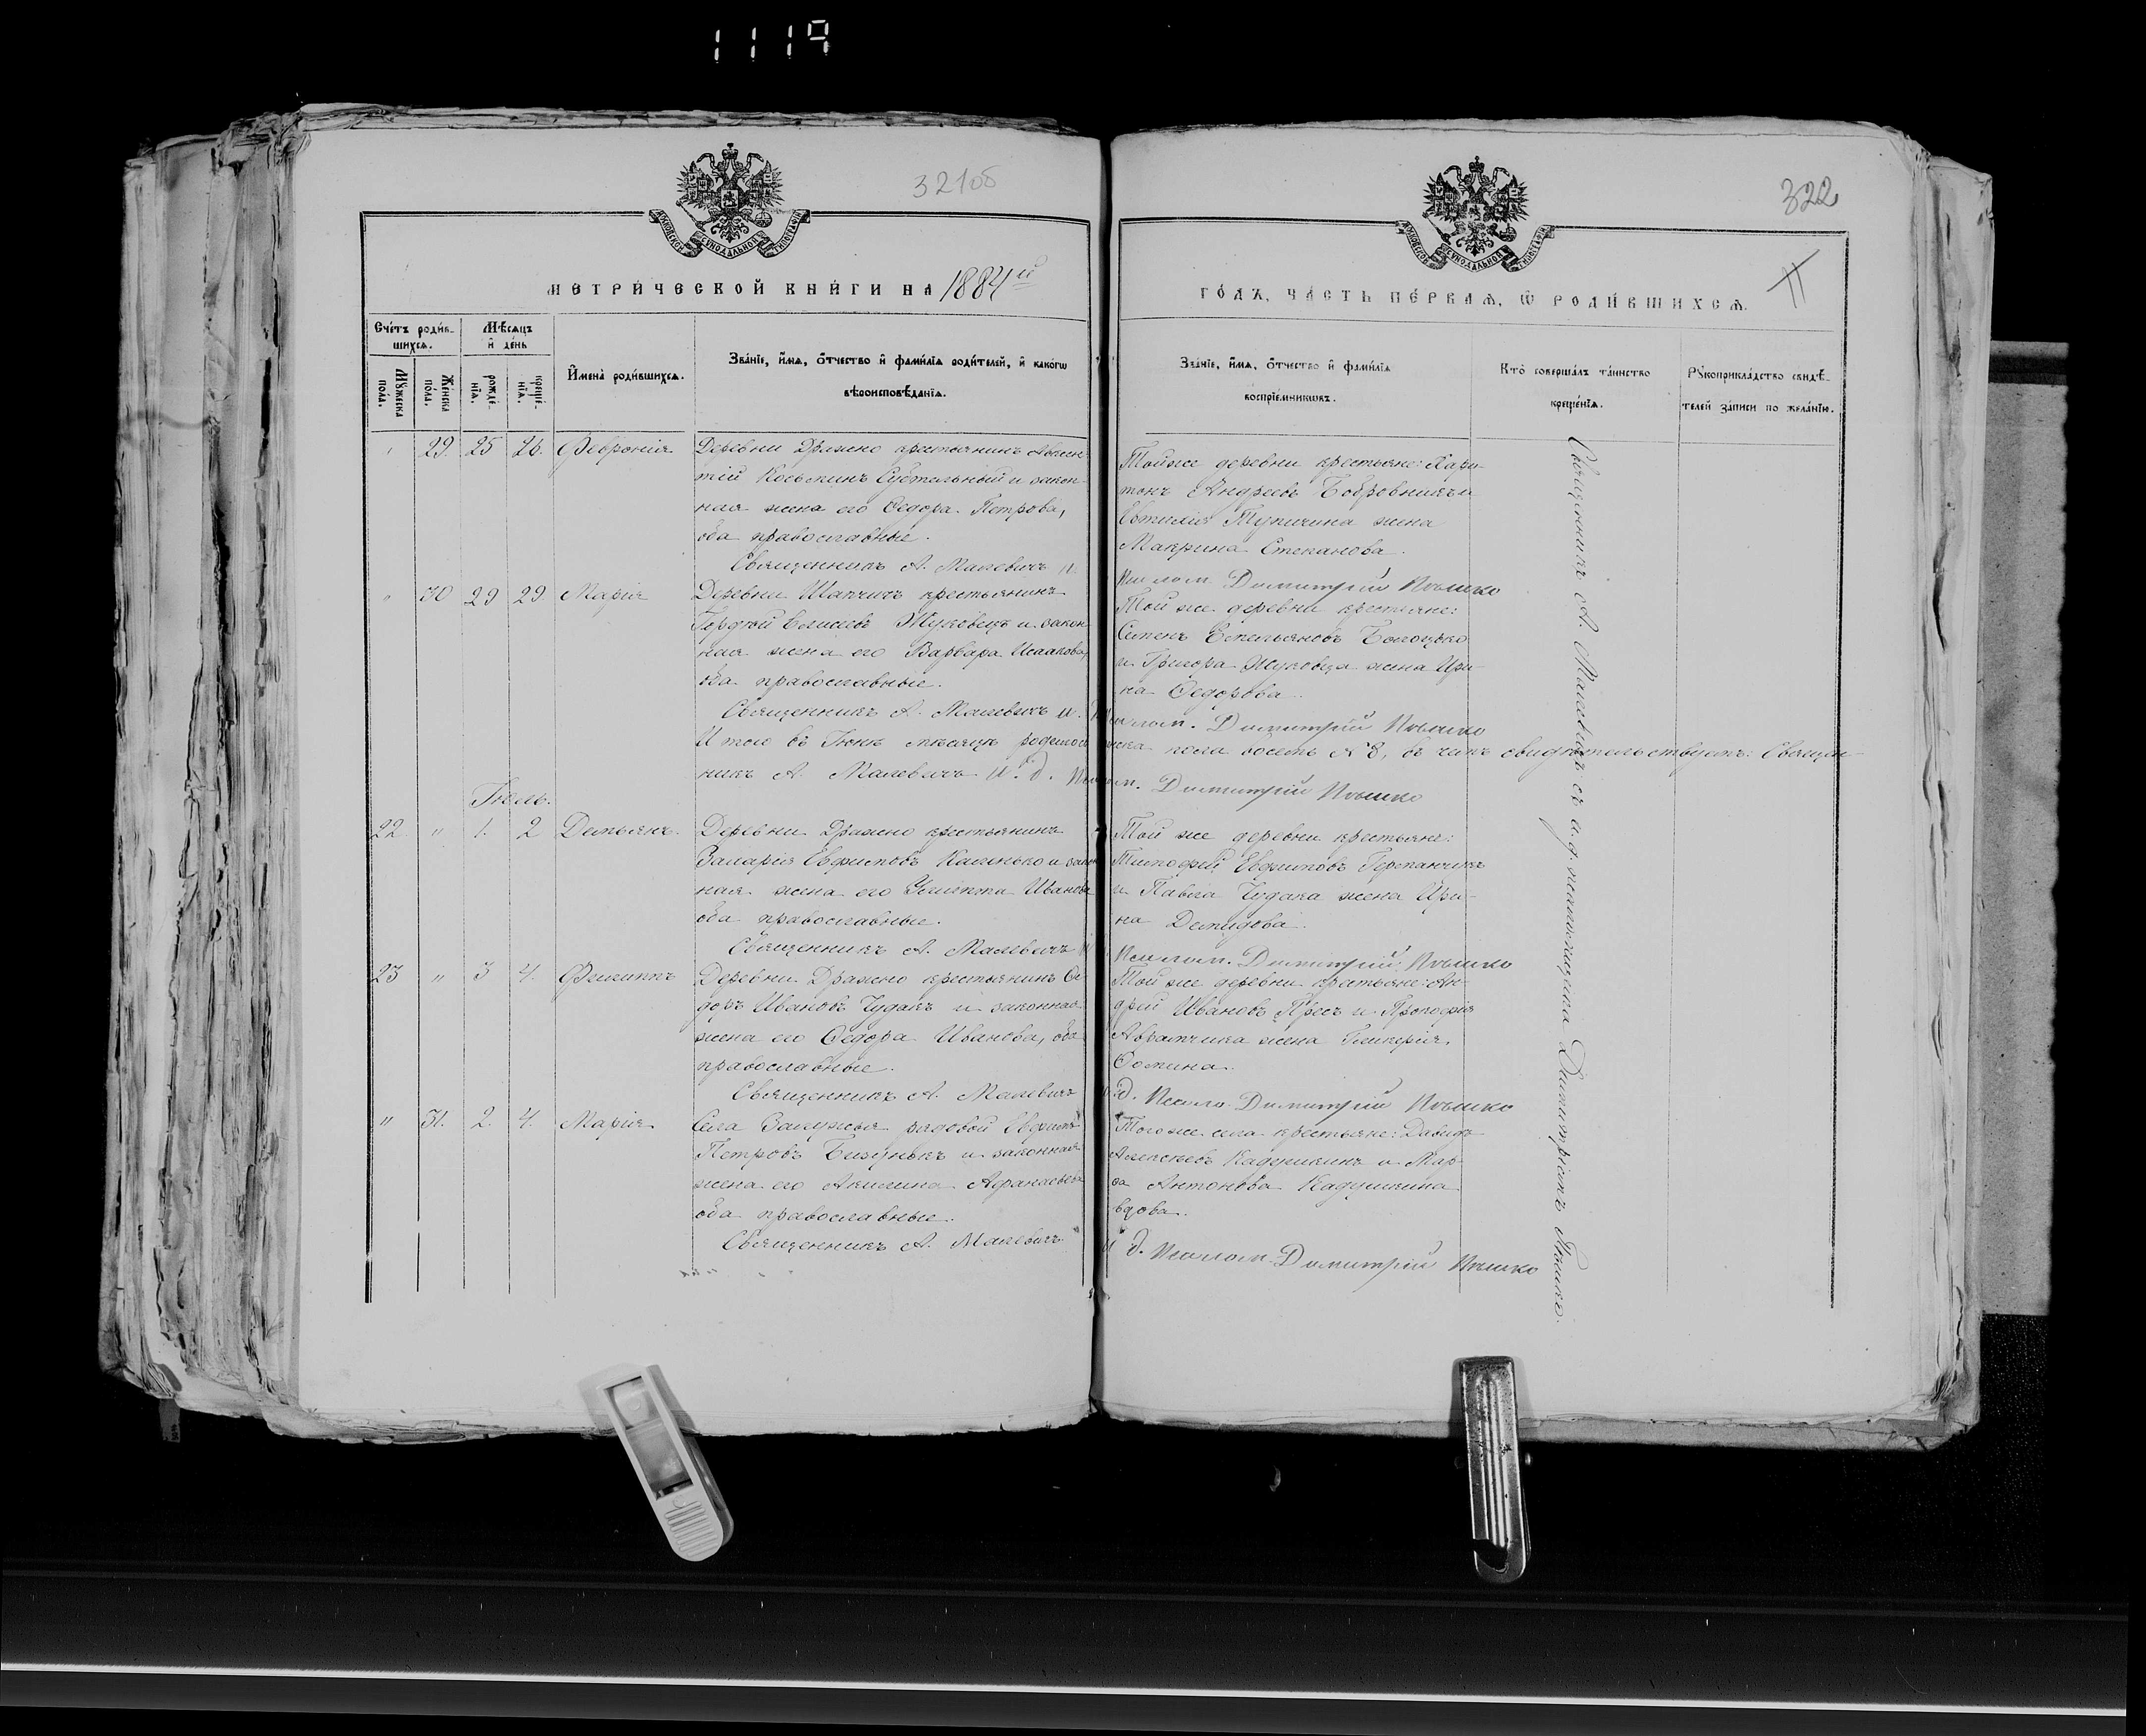 1119
321об
322
11
МЕТРИ́ЧЕСКОЙ КНИ́ГИ НА 1884й
ГО́ДЪ, ЧА́СТЬ ПЕ́РВАѦ, Ѡ РОДИ́ВШИХСѦ.
Сче́тъ роди́в-
шихсѧ.
Мꙋ́жеска
по́ла.
Же́нска
по́ла.
Мѣ́сѧцъ
и҆ де́нь
рожде́-
нїѧ.
креще́-
нїѧ.
И҆мена̀ роди́вшихсѧ.
Зва́нїе, и҆́мѧ, ѻ҆́тчество и҆ фами́лїѧ роди́телей, и҆ како́гѡ
вѣроисповѣ́данїѧ.
Зва́нїе, и҆́мѧ, ѻ҆́тчество и҆ фами́лїѧ
воспрїе́мникѡвъ.
Кто̀ соверша́лъ та́инство
креще́нїѧ.
Рꙋкоприкла́дство свидѣ́-
телей за́писи по жела́нїю.
29. 25 26. Февронія
Деревни Дражно крестьянинъ Авксен-
тій Косьминъ и закон-
ная жена его Ѳедора Петрова,
оба православные.
Священникъ А. Малевичъ и.
Той же деревни крестьяне: Хари-
тонъ Андреевъ Бобровникъ и
жена
Макрина Степанова.
Псалом. Димитрій Пышко
" 30 29 29 Марія
Деревни Шапчичъ крестьянинъ
Гордій Елисеевъ Жуковецъ и закон-
ная жена его Варвара Исаакова,
оба православные.
Священникъ А. Малевичъ и.
Той же деревни крестьяне:
Семенъ Емельяновъ
и Григора Жуковца жена Ири-
на Ѳедорова.
Псалом. Димитрій Пышко
Итого въ Іюнѣ мѣсяцѣ родилось женска пола восемь № 8, въ чемъ свидѣтельствуетъ: Священ-
никъ А. Малевичъ и. д. Псалом. Димитрій Пышко
Іюль.
22 " 1. 2 Демьянъ.
Деревни Дражно крестьянинъ
Евфимовъ Калинько и закон-
ная жена его Иванова
оба православные.
Священникъ А. Малевичъ и
Той же деревни крестьяне:
Тимофей Евфимовъ Германчикъ
и Павла Чудака жена Ири-
на Демидова.
Псалом. Димитрій Пышко
23 " 3 4. Филиппъ
Деревни Дражно крестьянинъ Ѳе-
доръ Ивановъ Чудакъ и законная
жена его Ѳедора Иванова, оба
православные.
Священникъ А. Малевичъ
Той же деревни крестьяне: Ан-
дрей Ивановъ и Прокофія
Аврамчика жена Гликерія
Ѳомина.
и д. Псало. Димитрій Пышко
" 31. 2. 4. Марія
Села Залужья рядовой Евфимъ
Петровъ Бизунькъ и законная
жена его Акилина Афанасьева
оба православные.
Священникъ А. Малевичъ
Того же села крестьяне: Давидъ
Алексѣевъ Кадушкинъ и Мар-
ѳа Антонова Кадушкина
вдова.
и д. Псалом. Димитрій Пышко
Священникъ А. Малевичъ съ и. д. псаломщика Димитріемъ Пышко.